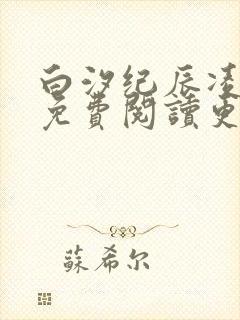 白汐纪辰凌
免費閱讀更
蘇希尔